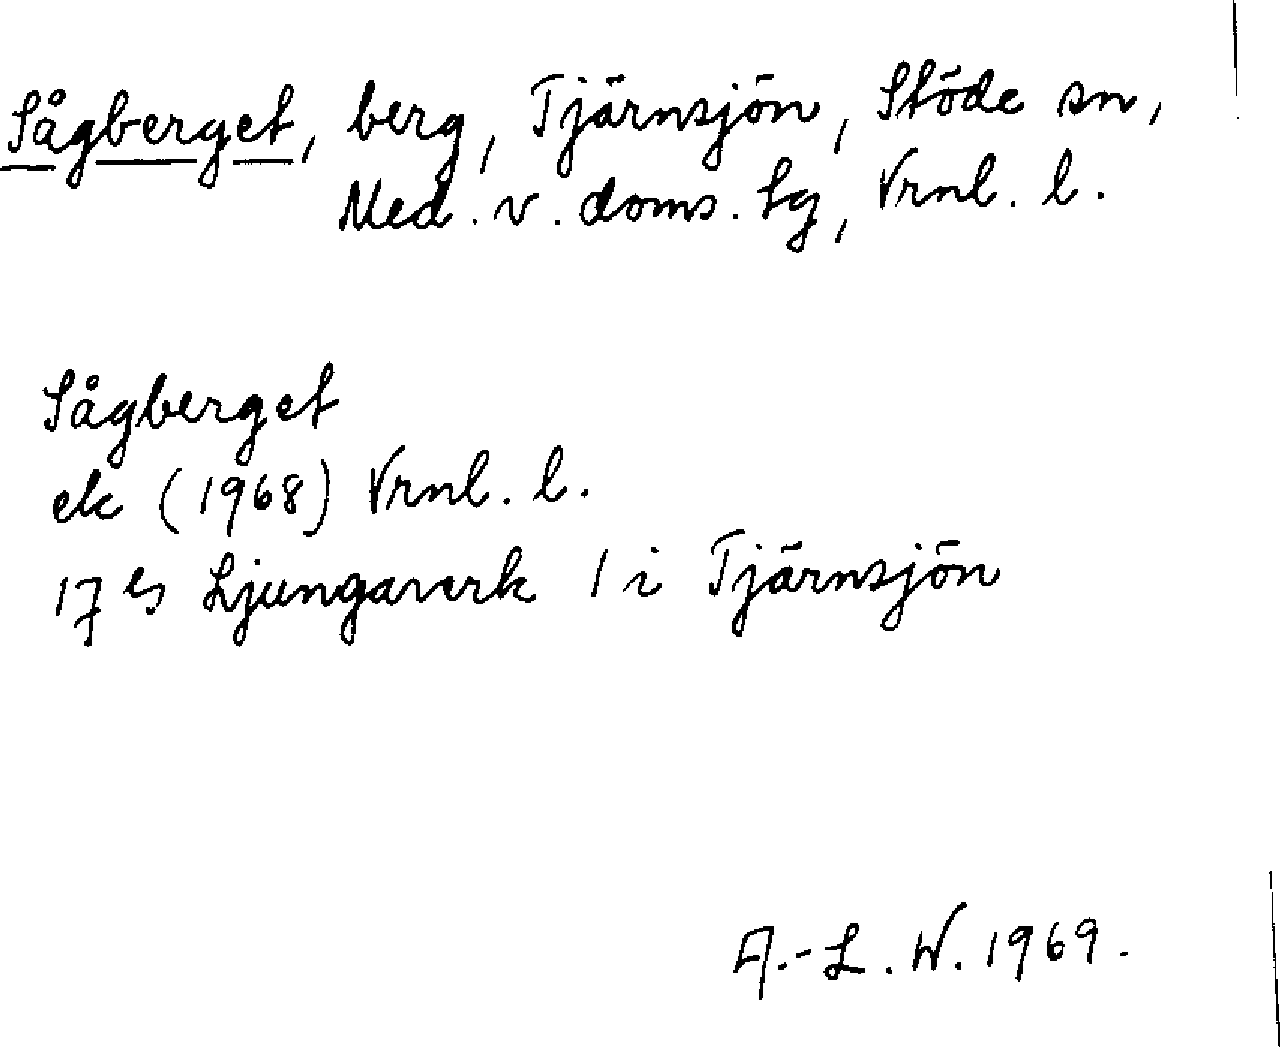 Sågberget, berg, Tjärnsjön, Stöde sn,
Med. v. doms. tg, Vrnl. l.
Sågberget
ek (1968) Vrnl. l.
17 es Ljungaverk 1 i Tjärnsjön
A.-L. W. 1969.